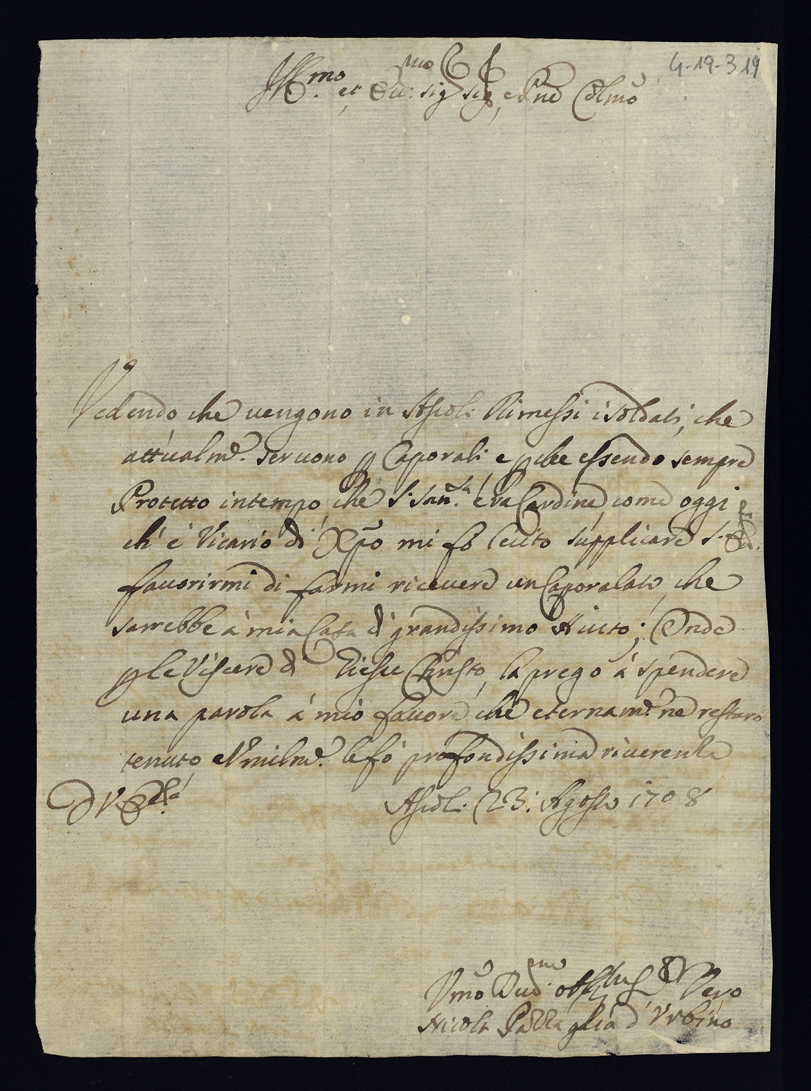 4-19-319
Ill.mo et Ecc:mo Sig.r Sig.r, e Pne Colmo
Vedendo che vengono in Ascoli Rimessi i soldati, che
attualm.e servono p Caporali e pche essendo sempre
Protetto in tempo, che S. San.tà era Cardine, come oggi
ch' è Vicario di Xpo mi fo lecito supplicare S. Ecc.
favorirmi di farmi ricevere un Caporalato, che
sarrebbe à mia Casa di grandissimo Aiuto; Onde
p le Viscere di Giesu Christo, la prego à spendere
una parola à mio favore che eternam.e ne restaro
tenuto, et Vmilm.e le fo profondissima riverenza
D V. Ecc.a
Ascoli 23: Agosto 1708
Vmo Dev.mo Vero
Nicola Battaglia d'Urbino